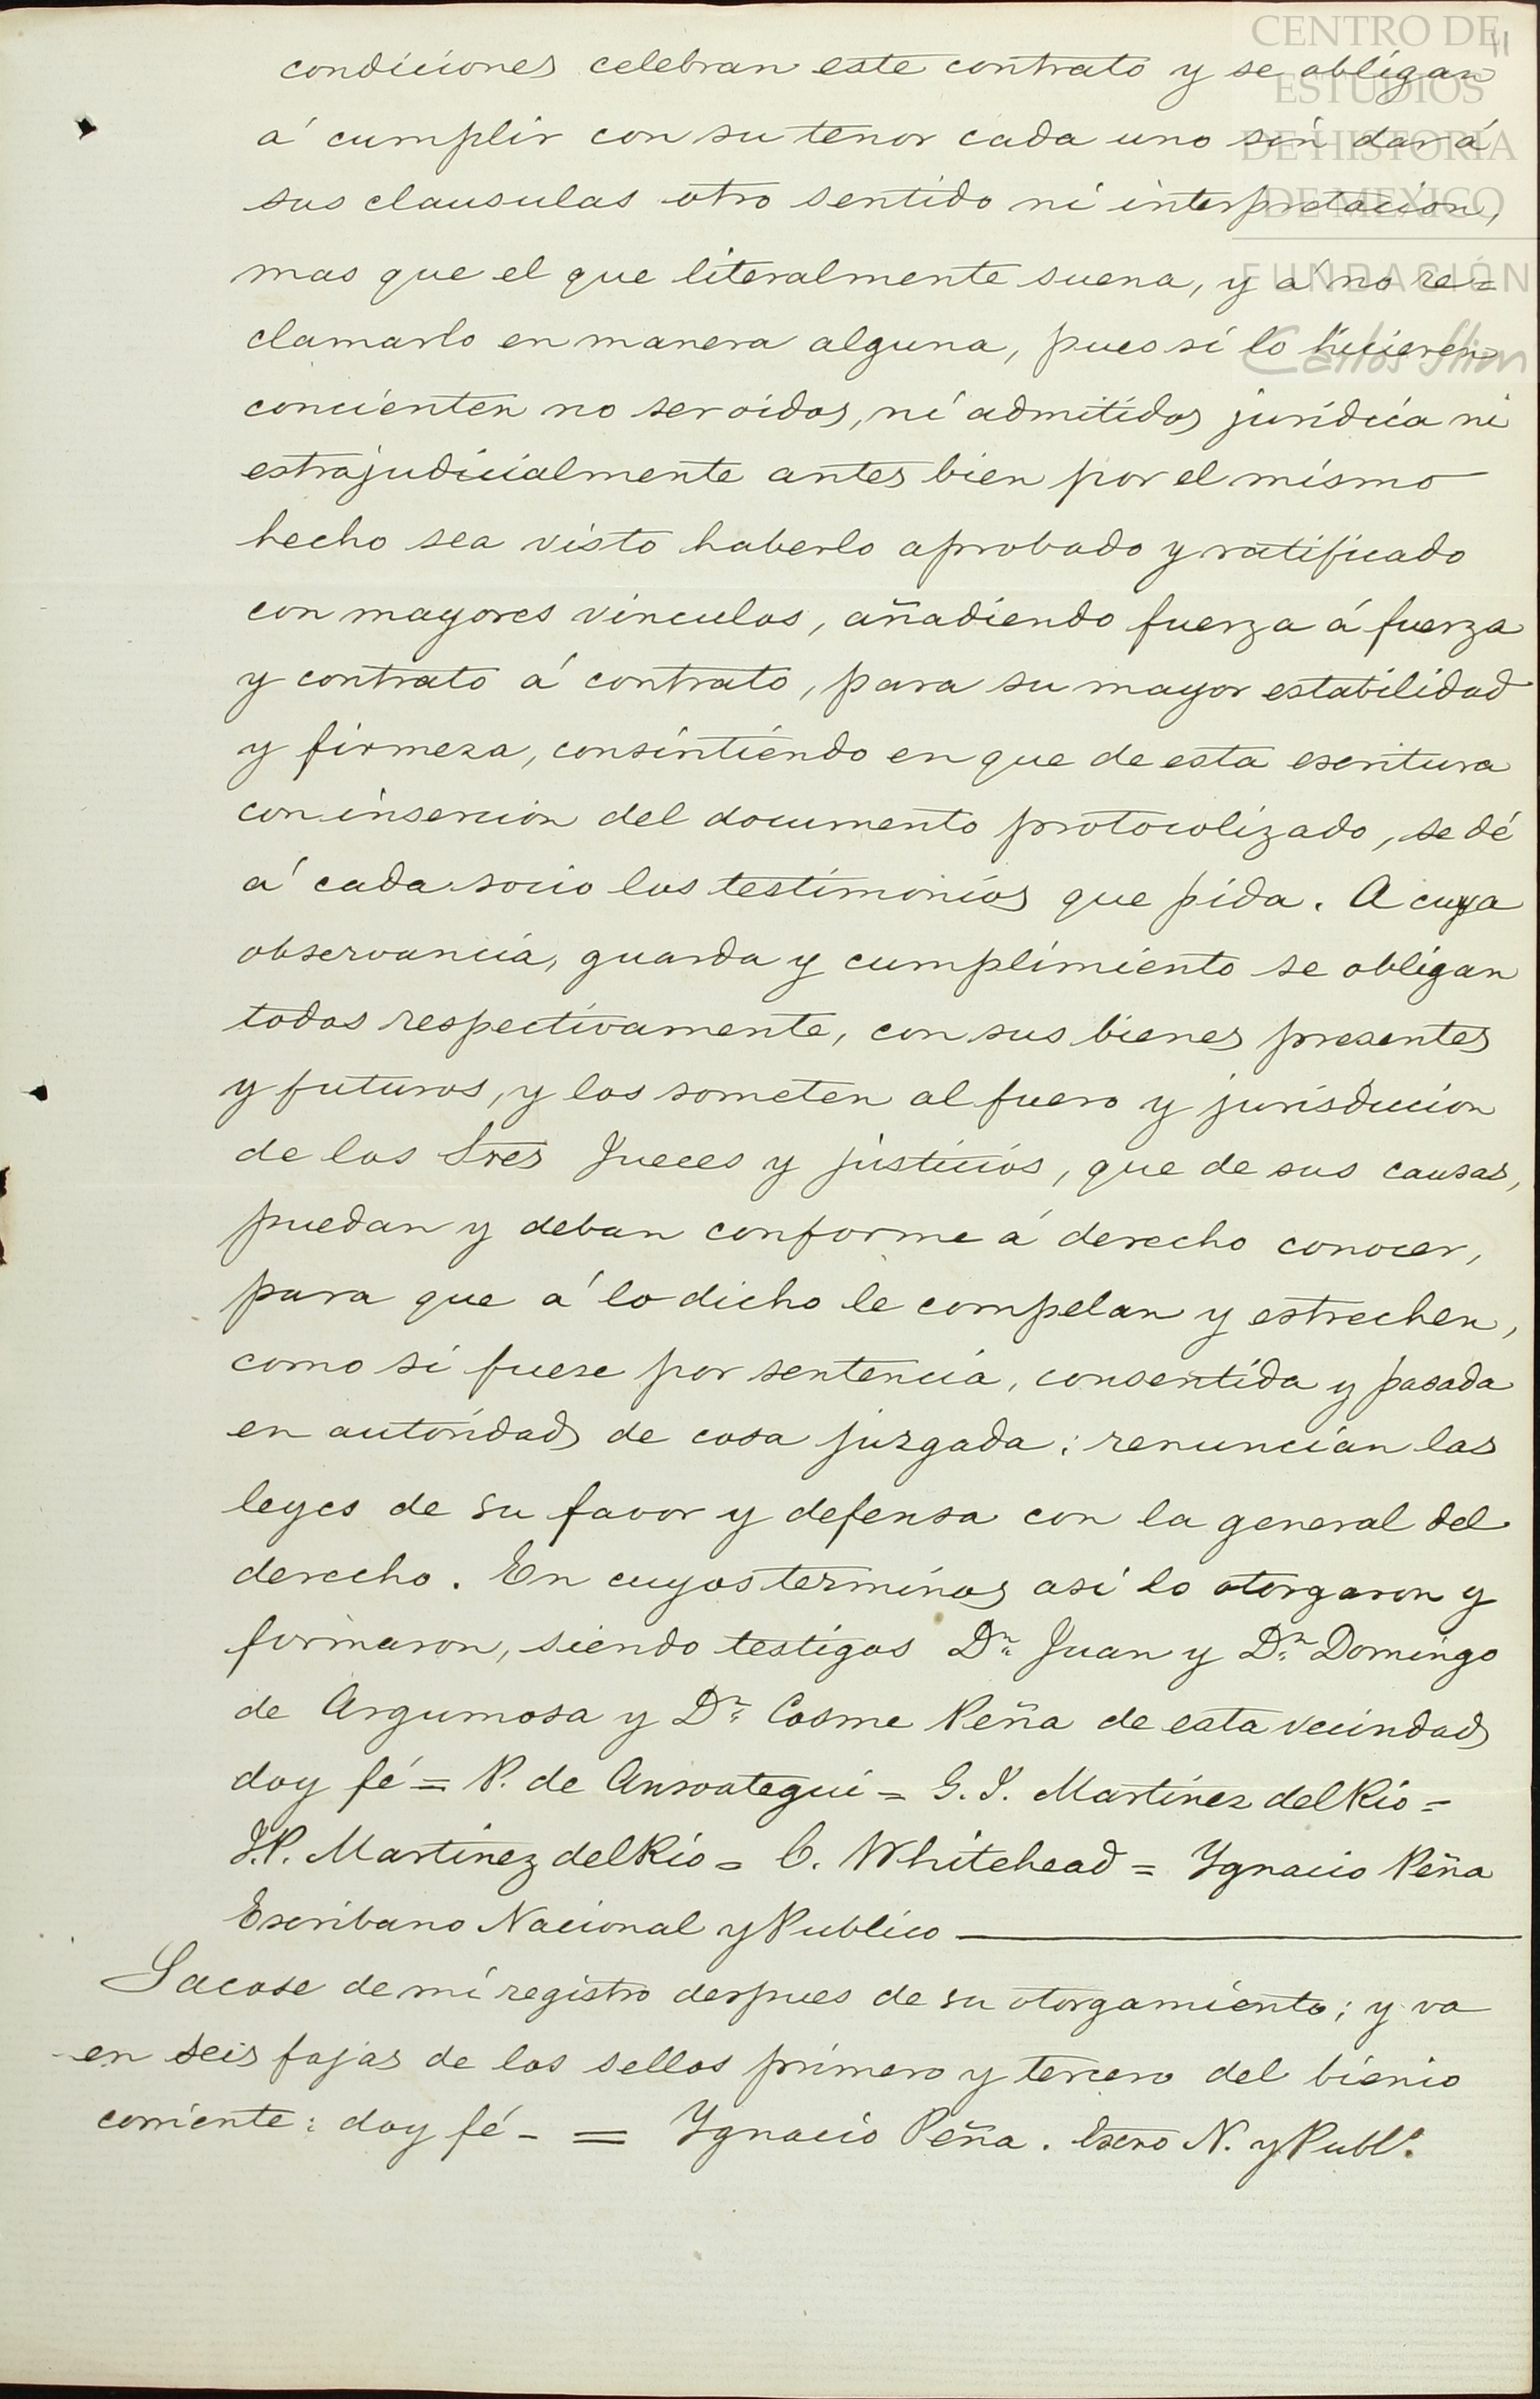 CENTRO DE
ESTUDIOS
DE HISTORIA
DE MEXICO
FUNDACIÓN
Carlos Slim
11
condiciones celebran este contrato y se obligan
á cumplir con su tenor cada uno sin dar á
sus clausulas otro sentido ni interpretacion,
mas que el que literalmente suena, y á no re=
clamarlo en manera alguna, pues si lo hicieren
concienten no ser oidos, ni admitidos juridica ni
estrajudicialmente antes bien por el mismo
hecho sea visto haberlo aprobado y ratificado
con mayores vinculos, añadiendo fuerza á fuerza
y contrato á contrato, para su mayor estabilidad
y firmeza, consintiendo en que de esta escritura
con insercion del documento protocolizado, se dé
á cada socio los testimonios que pida. A cuya
observancia, guarda y cumplimiento se obligan
todos respectivamente, con sus bienes presentes
y futuros, y los someten al fuero y jurisdiccion
de los Sres Jueces y justicias, que de sus causas,
puedan y deban conforme á derecho conocer,
para que á lo dicho le compelan y estrechen,
como si fuese por sentencia, consentida y pasada
en autoridad de cosa juzgada: renuncian las
leyes de su favor y defensa con la general del
derecho. En cuyos terminos asi lo otorgaron y
firmaron, siendo testigos Dn. Juan y Dn. Domingo
de Argumosa y Dn. Cosme Peña de esta vecindad
doy fé = P. de Ansoategui = G. S. Martinez del Rio =
J.P. Martinez del Rio = C. Whitehead = Ygnacio Peña
Escribano Nacional y Publico
Sacose de mi registro despues de su otorgamiento; y va
en seis fojas de los sellos primero y tercero del bienio
corriente: doy fé - = Ygnacio Peña. Escno N. y Publo.